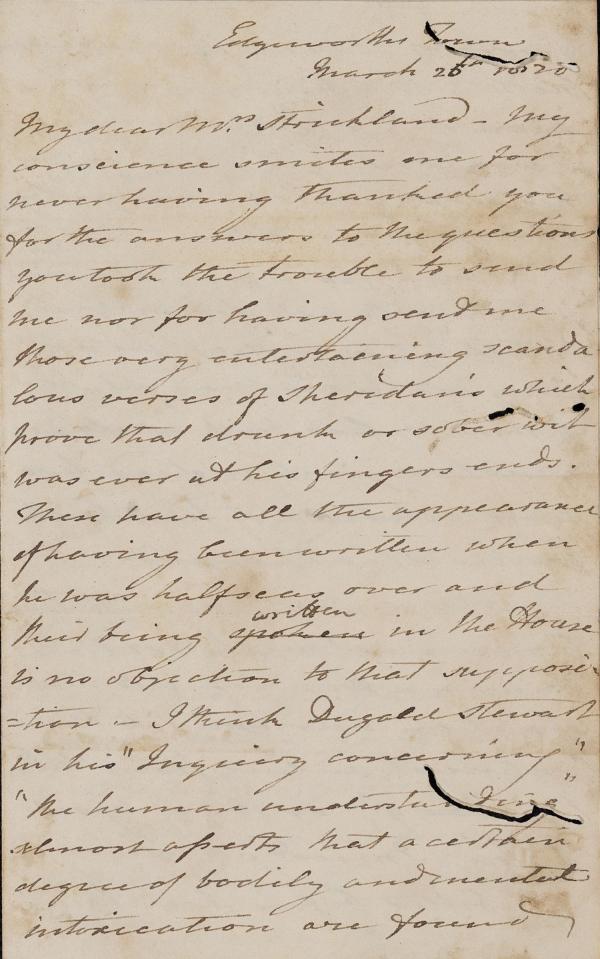 Edgeworths Town
March 26th 1820
My dear Mrs Strickland - My
conscience smites me for
never having thanked you
for the answers to the questions
you took the trouble to send
me nor for having send me
those very entertaining scanda
lous verses of Sheridan's which
prove that drunk or sober wit
was ever at his fingers ends.
These have all the appearance
of having been written when
he was half seas over and
written
their being spoken in the House
is no objection to that supposi-
=tion - I think Dugald Stewart
in his "Inquiry concerning"
"the human understanding"
almost asserts that a certain
degree of bodily and mental
intoxication are found